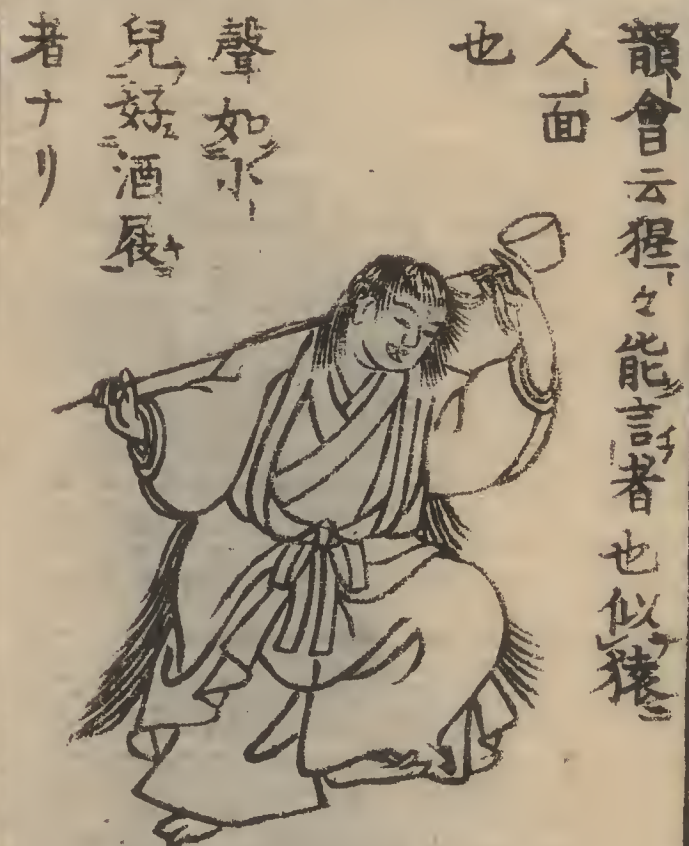 韻會云猩々能言者也似猿
人面
也
聲如小
兒好酒屐
者ナリ